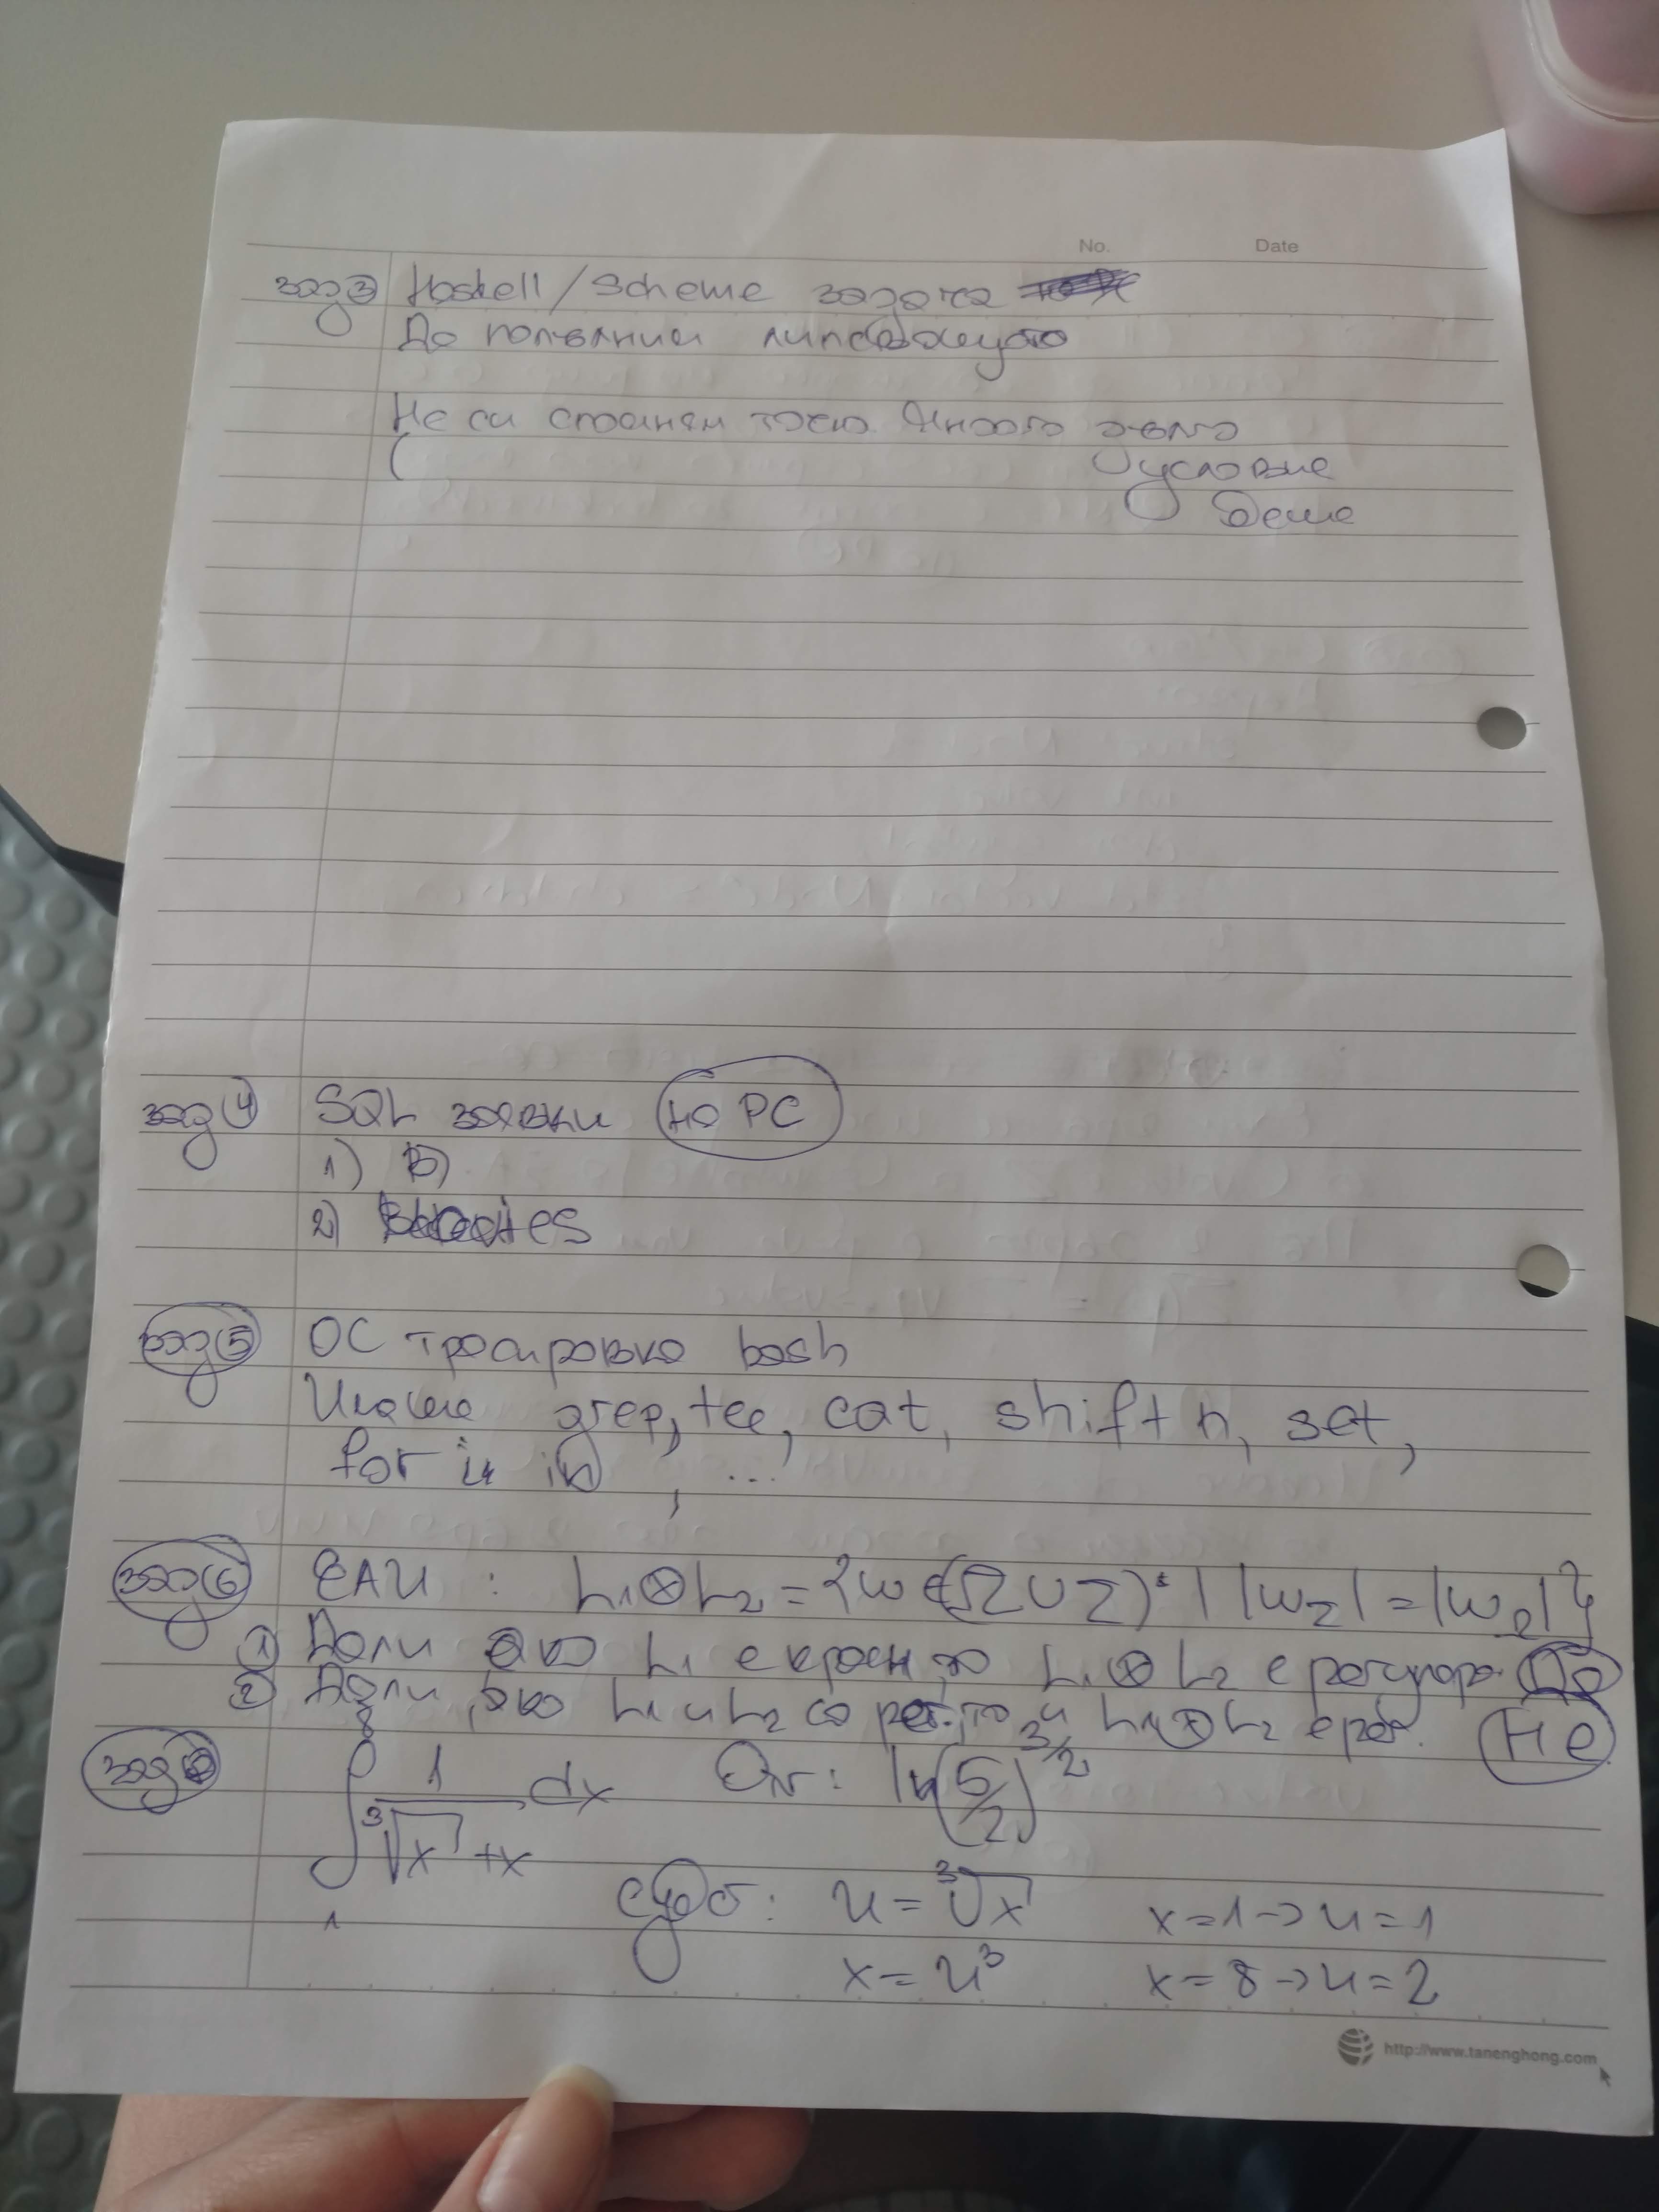 No. Date
зад 3 Haskell / Scheme задача
Да попълним липсващото
Не си спомням точно. Много дълго
( условие
беше
зад 4 SQL заявки на PC
1) B)
2)
зад 5 ОС трасировка bash
Имаше grep, tee, cat, shift n, set,
for i in , ...
зад 6 ЕАИ : L₁⊗L₂ = {w ∈ (Ω ∪ Σ)* | |w_Σ| = |w_Ω|}
1) Дали ако L₁ е краен то L₁⊗L₂ е регулярен Да
2) Дали, ако L₁ и L₂ са рег., то и L₁⊗L₂ е рег. Не
зад ∫₁⁸ 1/(∛x + x) dx Отг: ln(5/2)^3/2
субст: u = ∛x x = 1 -> u = 1
x = u³ x = 8 -> u = 2
http://www.tanenghong.com